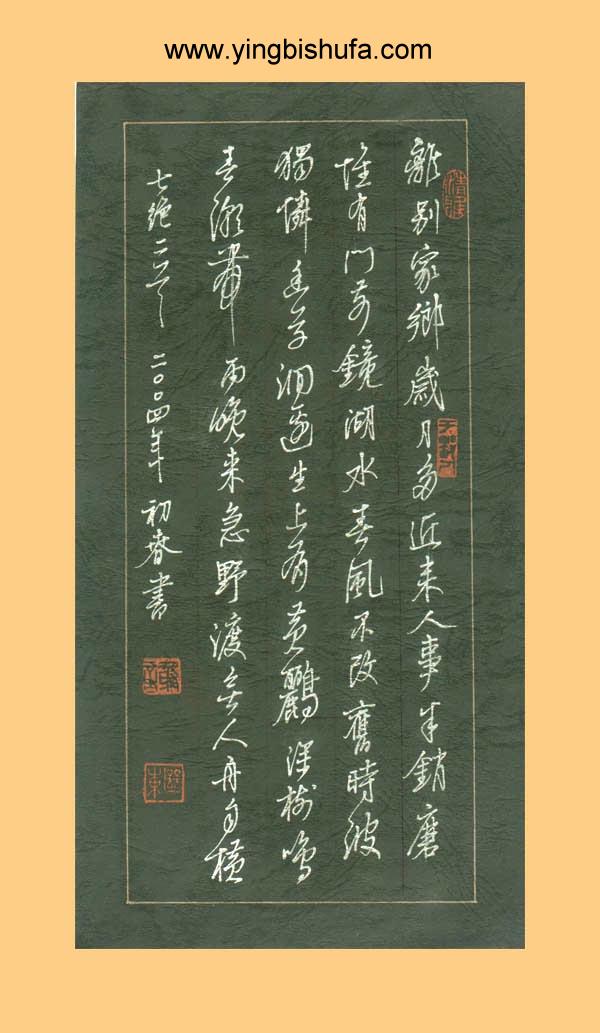 www.yingbishufa.com
離别家鄉歲月多近来人事半銷磨
惟有門前鏡湖水春風不改舊時波
獨憐幽草澗邊生上有黄鸝深樹鳴
春潮帶雨晚来急野渡無人舟自横
七絶二首 二〇〇四年初春書